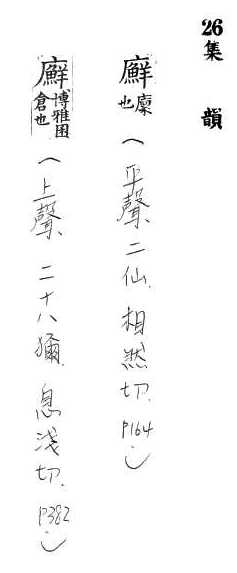 26集韻
廯廩也(平聲、二仙、相然切、P164、)
廯博雅囷倉也(上聲、二十八獮、息淺切、P382、)